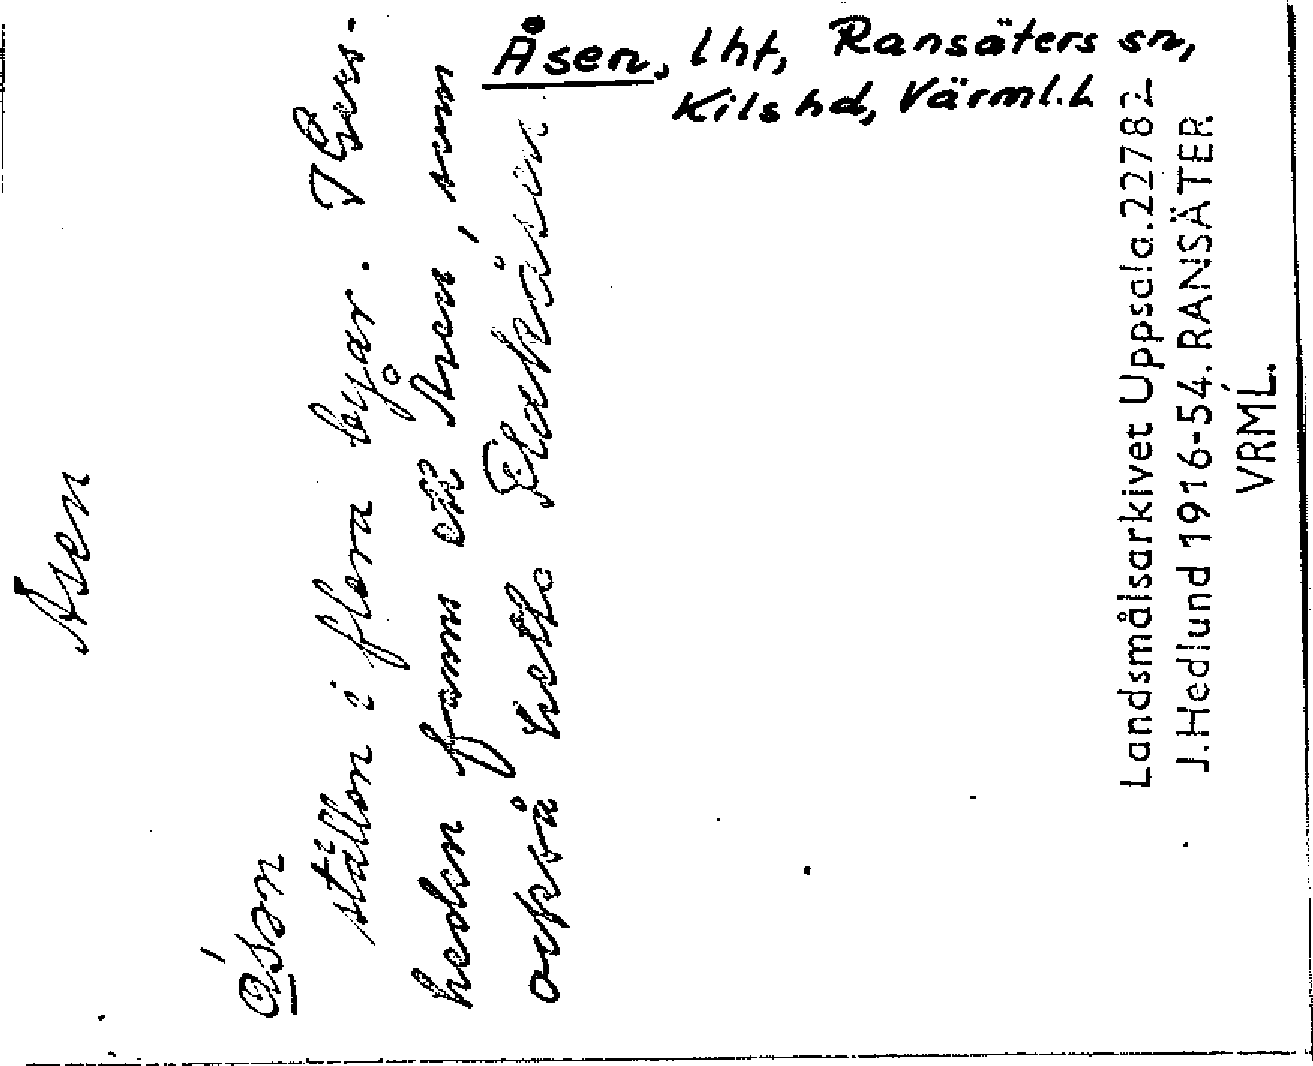 Åsen, lht, Ransäters sn,
Kils hd, Värml. L
Åsen
ställen i flera byar. I
heden fanns ett Åsen, som
också hette Plakåsen
Landsmålsarkivet Uppsala. 22782
J. Hedlund 1916-54. RANSÄTER
VRML.